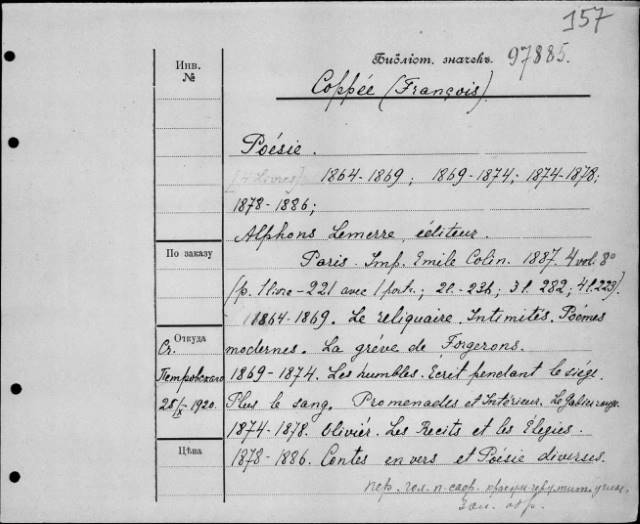 157
Инв.
№
Библіот. значекъ 97885.
Coppée (François).
Poésie.
[4 Livres] 1864-1869; 1869-1874; 1874-1878;
1878-1886;
Alphons Lemerre, éditeur.
По заказу
Paris. Imp. Emile Colin. 1887. 4 vol. 8°
(p. 1 livre - 221 avec 1 portr.; 2 l. - 234; 3 l. 282; 4 l. 223).
1864-1869. Le reliquaire. Intimités. Poémes
Откуда
modernes. La gréve de Forgerons.
Ст.
Петровскаго
25/IX 1920.
1869-1874. Les humbles. Ecrit pendant le siége.
Plus le sang. Promenades et Intérieur. Le
1874-1878. Olivier. Les Recits et les Elegies.
Цѣна
1878-1886. Contes en vers et Poésie diverses.
пер.